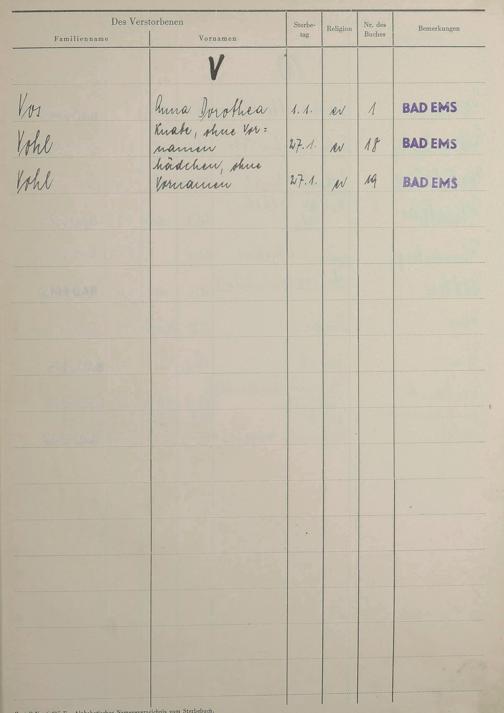 Des Verstorbenen
Familienname Vornamen Sterbe-tag Religion Nr. des Buches Bemerkungen
V
Vos Anna Dorothea 1.1. ev 1 BAD EMS
Vohl Knabe, ohne Vor=
namen 27.1. ev 18 BAD EMS
Vohl Mädchen, ohne
Vornamen 27.1. ev 19 BAD EMS
Alphabetisches Namensverzeichnis zum Sterbebuch.